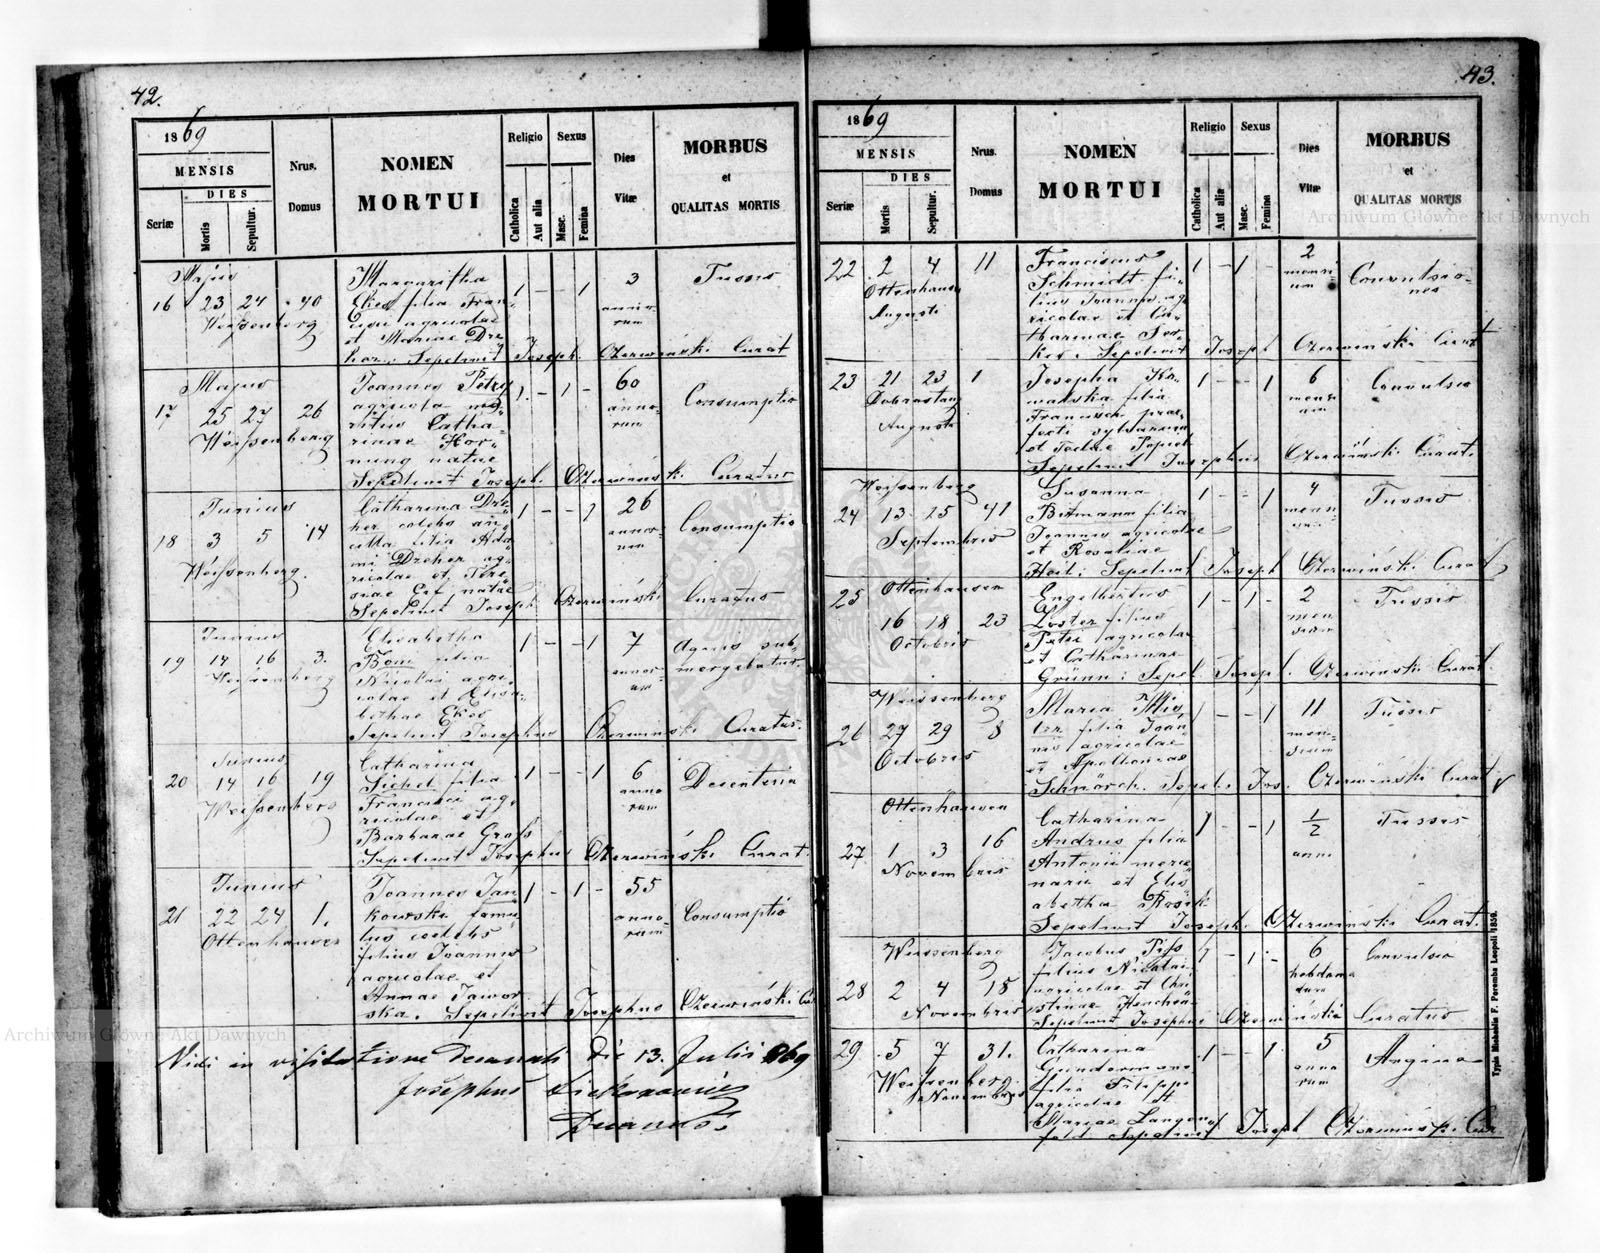 42.
1869
MENSIS
DIES
Seriæ
Mortis
Sepultur.
Nrus.
Domus
NOMEN
MORTUI
Religio
Catholica
Aut alia
Sexus
Masc.
Femina
Dies
Vitæ
MORBUS
et
QUALITAS MORTIS
Majus
16 23 24 40
Weissenberg
Margaritha
filia Fran-
cisci agricolae
et Mariae Dre-
her. Sepelivit Joseph Czerwiński Curat
1 - - 1
3
anno-
rum
Tussis
Majus
17 25 27 26
Weissenberg
Joannes Petry
agricola ma-
ritus Catha-
rinae Hor-
nung natae
Sepelivit Joseph. Czerwiński Curatus
1 - 1 -
60
anno-
rum
Consumptio
Junius
18 3 5 14
Weissenberg.
Catharina Dre-
her coelebs an-
cilla filia Ada-
mi Dreher ag-
ricolae et Tere-
siae natae
Sepelivit Joseph Czerwiński Curatus
1 - - 1
26
annor-
um
Consumptio
Junius
19 14 16 3.
Weissenberg
Elisabetha
Bom filia
Nicolai agri-
colae et Elisa-
bethae Ekes
Sepelivit Josephus Czerwiński Curatus.
1 - - 1
7
annor-
um
Aquis sub-
mergebatur
Junius
20 14 16 19
Weissenberg
Catharina
Sichel filia
Francisci ag-
ricolae et
Barbarae Grass
Sepelivit Josephus Czerwiński Curat.
1 - - 1
6
anno
rum
Desenteria
Junius
21 22 24 1.
Ottenhausen
Joannes Jan-
kowski famu-
lus coelebs
filius Joannis
agricolae et
Annae Jawor-
ska. Sepelivit Josephus Czerwiński Cur
1 - 1 -
55
anno-
rum
Consumptio
Vidi in visitatione Decanali die 13. Julii 869
Josephus
Decanus.
43.
1869
MENSIS
DIES
Seriæ
Mortis
Sepultur.
Nrus.
Domus
NOMEN
MORTUI
Religio
Catholica
Aut alia
Sexus
Masc.
Femina
Dies
Vitæ
MORBUS
et
QUALITAS MORTIS
22 2 4 11
Ottenhausen
Augusti
Franciscus
Schmidt fi-
lius Joannis ag-
ricolae et Ca-
tharinae
Sepelivit Joseph Czerwiński Curat
1 - 1 -
2
mensi-
um
Convulsio-
nes
23 21 23 1
Dobrostany
Augusti
Josepha
filia
Francisci prae-
fecti sylvarum
et Teclae Popiel
Sepelivit Josephus Czerwiński Curat.
1 - - 1
6
mensi
um
Convulsio
Weissenberg
24 13 15 41
Septembris
Susanna
Bitmann filia
Joannis agricolae
et Rosaliae
Hoil: Sepelivit Joseph Czerwiński Curat
1 - - 1
4
Tussis
Ottenhausen
25 16 18 23
Octobris
Engelbertus
Koster filius
Petri agricolae
et Catharinae
Grünn: Sepel. Joseph. Czerwiński Curat.
1 - 1 -
2
men-
sium
Tussis
Weissenberg
26 27 29 8
Octobris
Maria
filia Joan-
nis agricolae
et Apolloniae
Schnörch. Sepel. Jos. Czerwiński Curat.
1 - - 1
11
men-
sium
Tussis
Ottenhausen
27 1 3 16
Novembris
Catharina
Andrus filia
Antonii merce
narii et Elis
abetha
Sepelivit Joseph. Czerwiński Curat.
1 - - 1
½
anni
Tussis
Weissenberg
28 2 4 18
Novembris
Jacobus
filius Nicolai
agricolae et Chri
stinae
Sepelivit Josephus Czerwiński Curatus
1 - 1 -
6
hebdoma
dum
Convulsio
29 5 7 31.
Weissenberg
Novembris
Catharina
Gundermann
filia Filippi
agricolae et
Mariae Langen
feld Sepelivit Joseph Czerwiński Cur
1 - - 1
5
anno
rum
Angina
Typis Michaëlis F. Poremba Leopoli 1859.
Archiwum Główne Akt Dawnych
Archiwum Główne Akt Dawnych